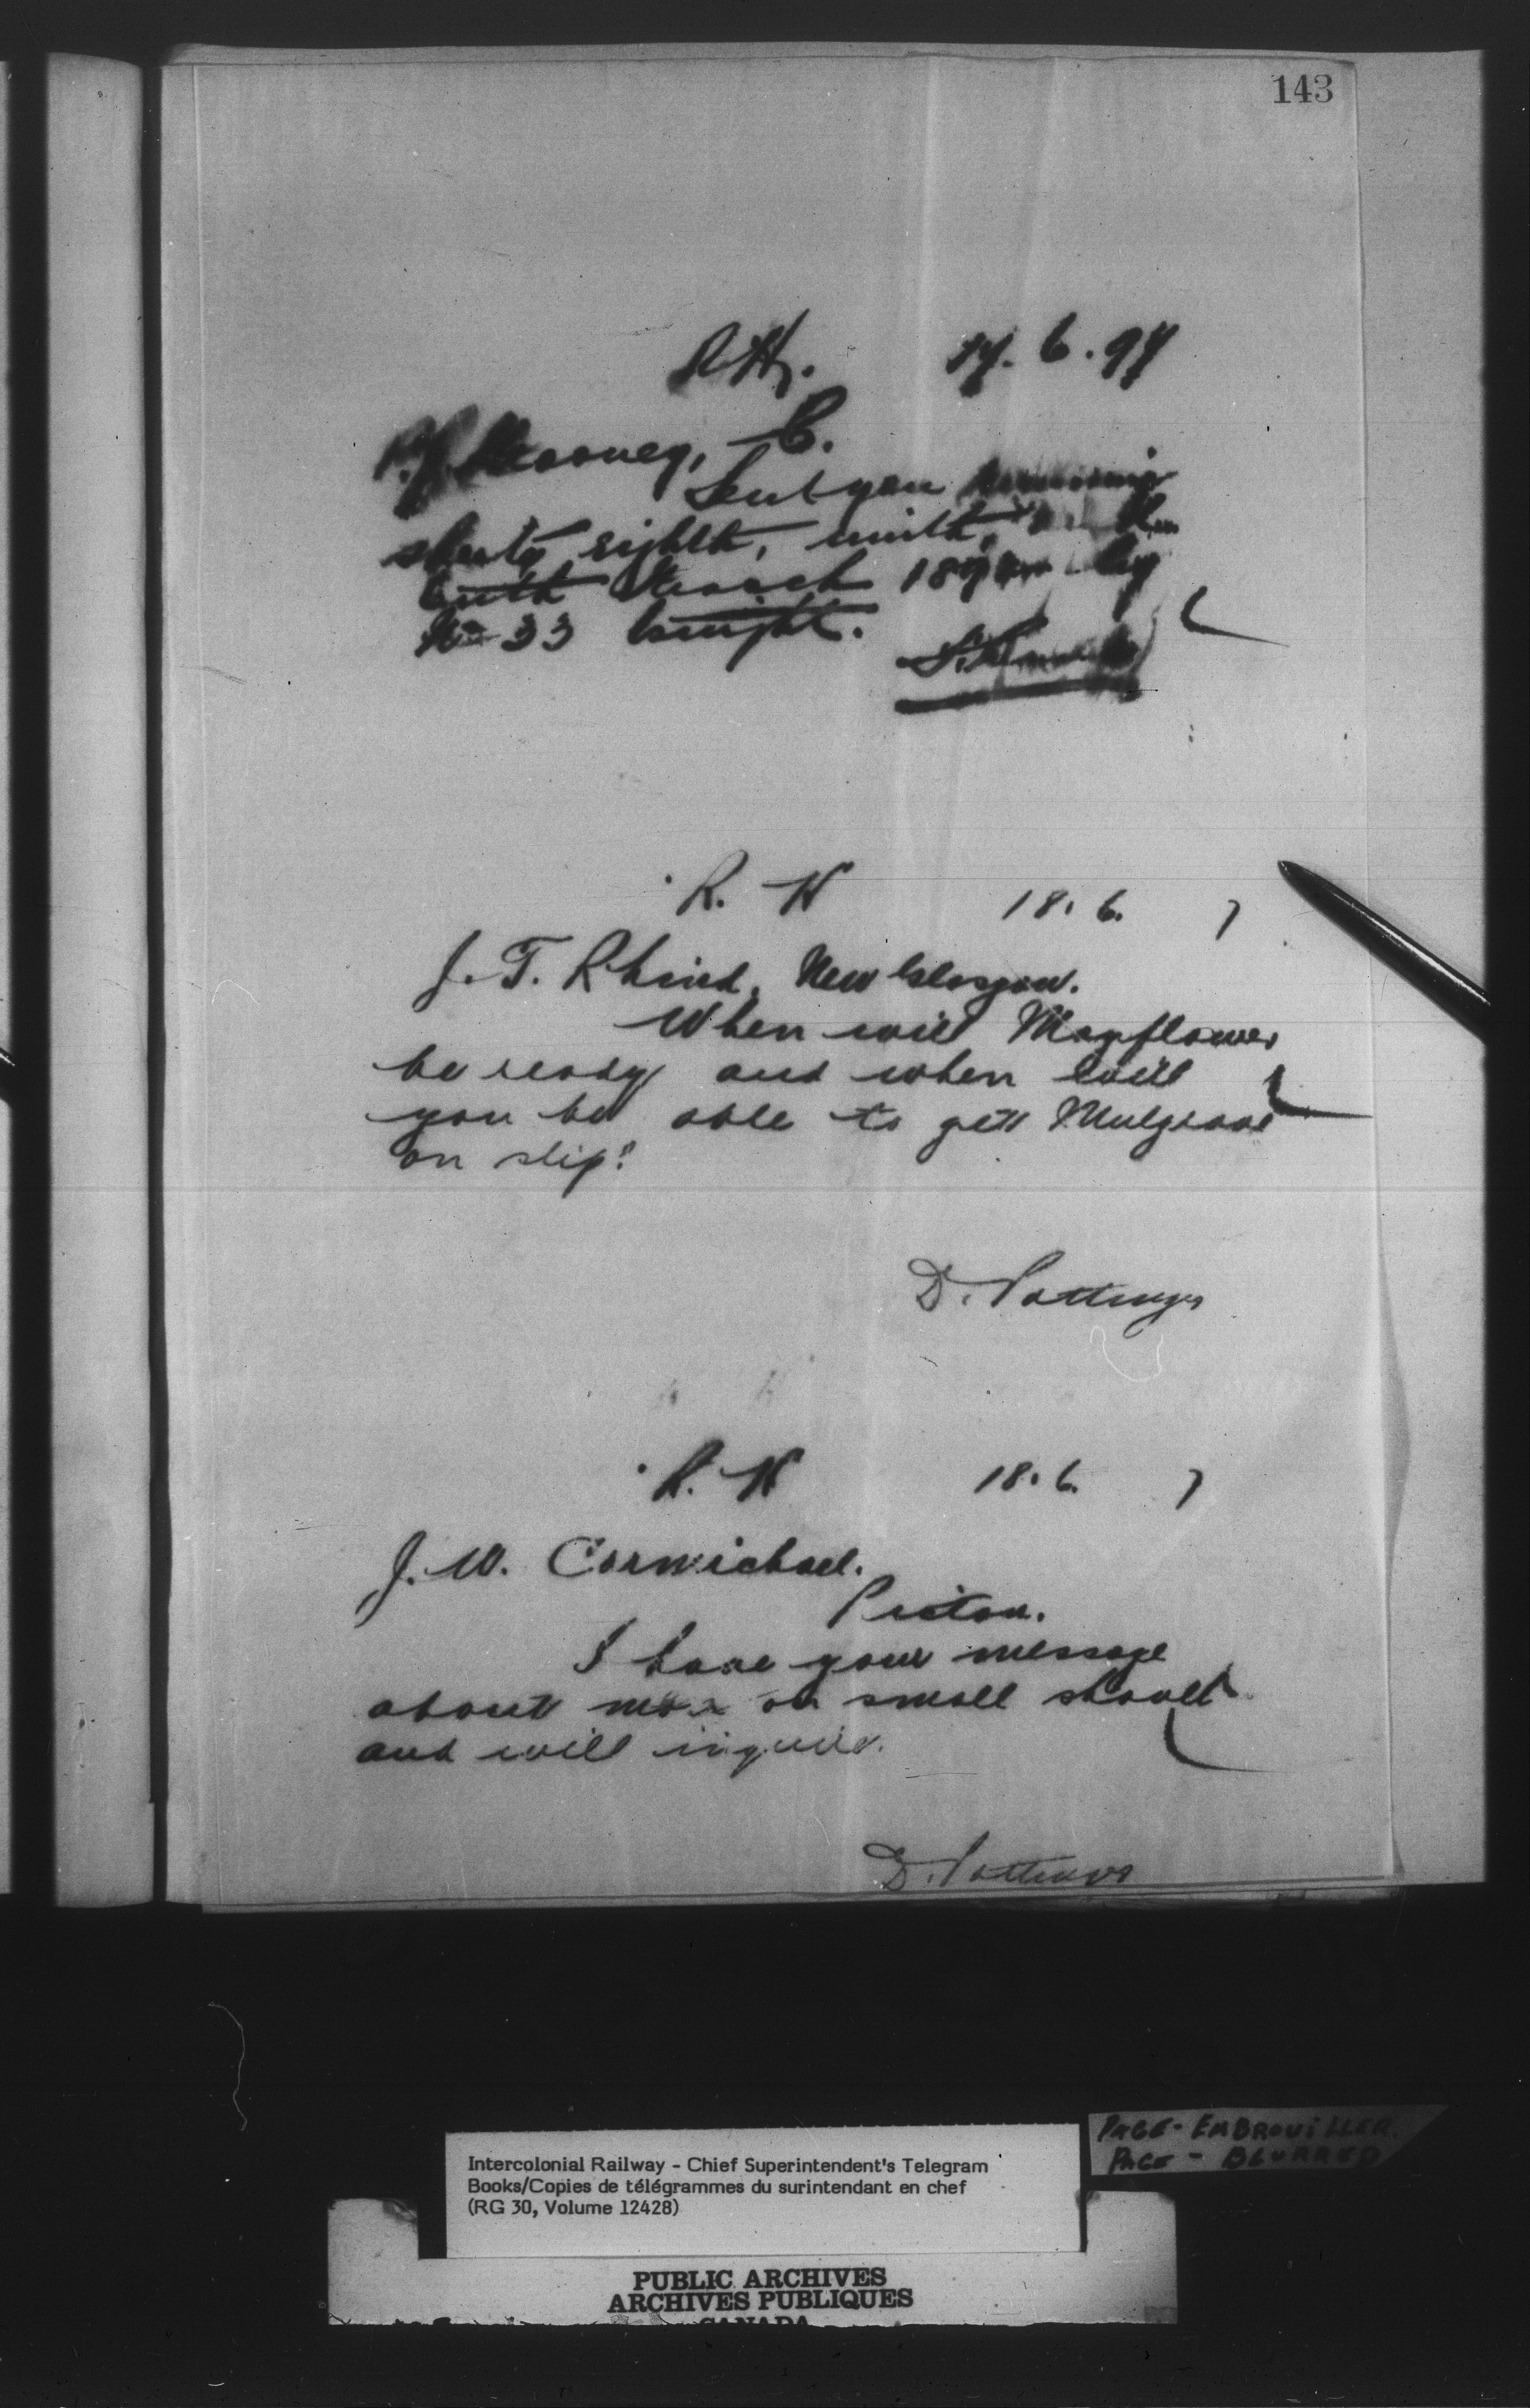 143
R.H. 17. 6. 97
P.J. Mooney, C.
Sent you
sheets eighth, ninth,
tenth March 189 by
No 33 tonight.
R. H 18. 6. 7
J. T. Rhind, New Glasgow.
When will Mayflower
be ready and when will
you be able to get Mulgrave
on slip?
D. Pottinger
R. H 18. 6. 7
J. W. Carmichael.
Pictou.
I have your message
about man on small
and will inquire.
D. Pottinger
PAGE - EMBROUILLER.
PAGE - BLURRED
Intercolonial Railway - Chief Superintendent's Telegram
Books/Copies de télégrammes du surintendant en chef
(RG 30, Volume 12428)
PUBLIC ARCHIVES
ARCHIVES PUBLIQUES
CANADA